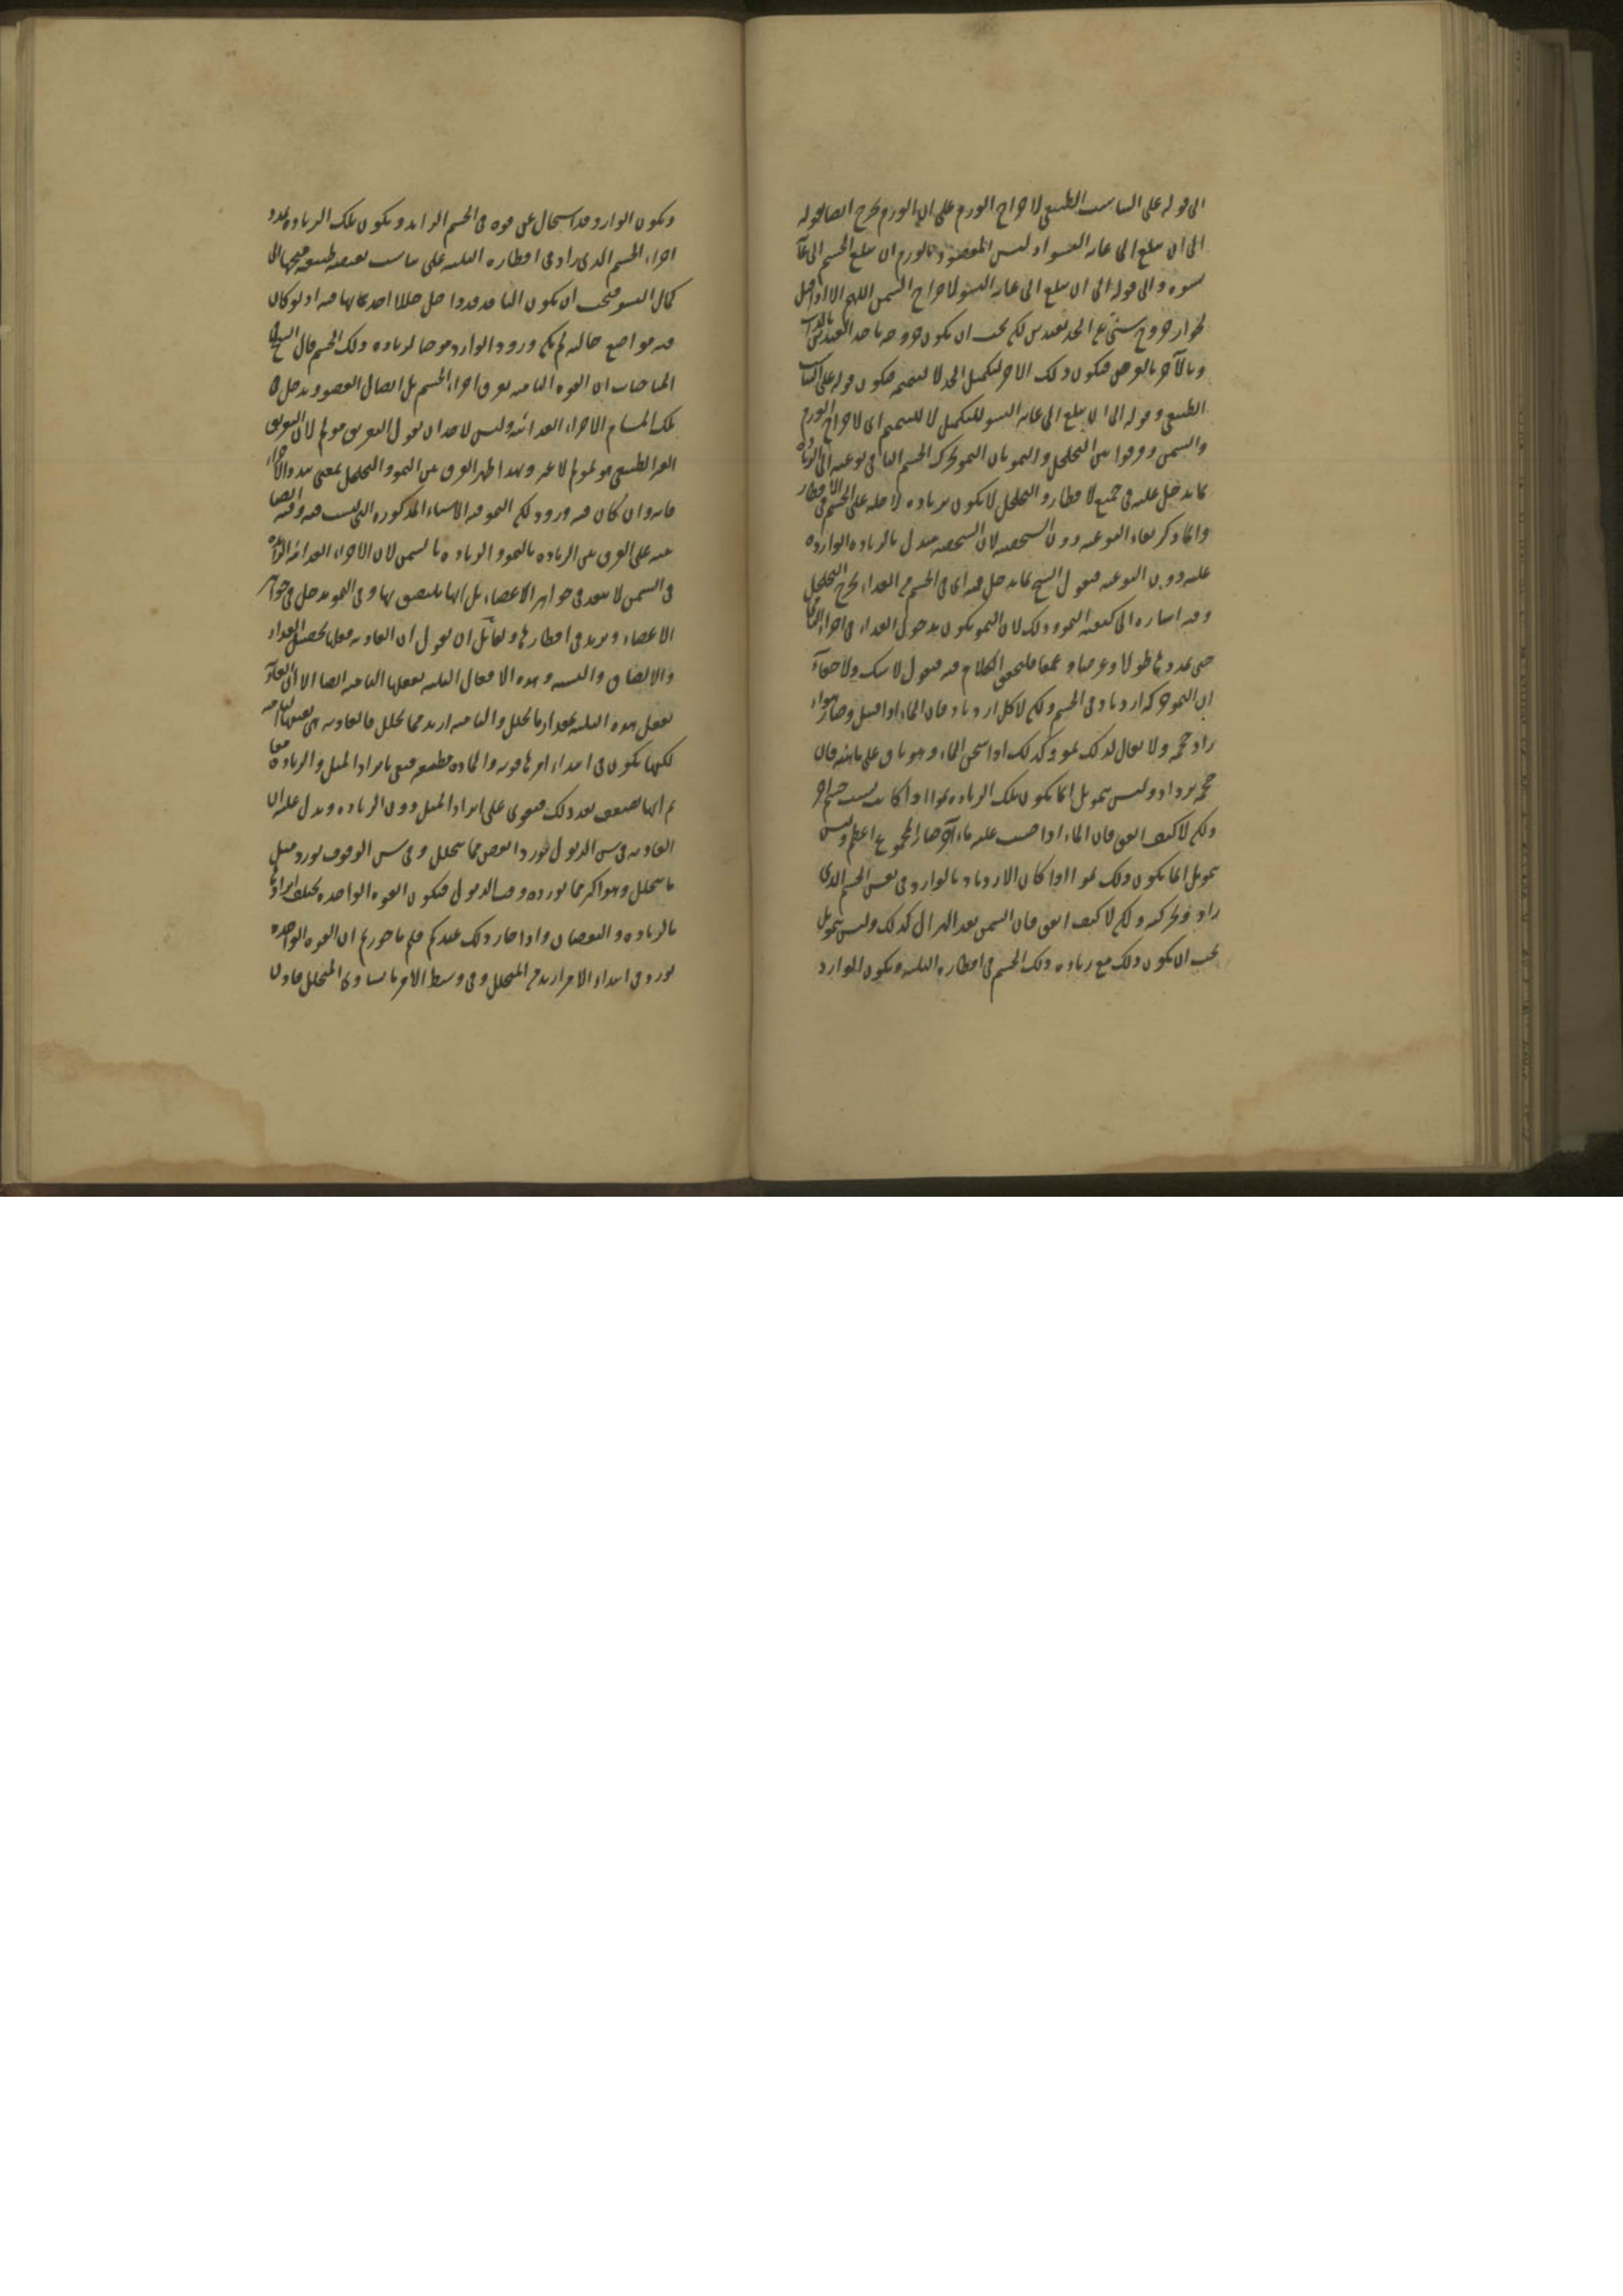 الى قوله على التناسب الطبيعي لاخراج الورم على ان الورم يخرج ايضا بقوله
الى ان يبلغ الى غاية النشو اذ ليس المقصود بالورم ان يبلغ الجسم الى غاية
نشوه والى قوله الى ان يبلغ الى غاية النشو لاخراج السمن اللهم الا اذا قيل
لجواز خروج شيء عن الحد بقيدين لكن يجب ان يكون خروجه باحد القيدين بالذات
وبالآخر بالعرض فيكون ذلك الاخر لتكميل الحد لا لتتميمه فيكون قوله على التناسب
الطبيعي وقوله الى ان يبلغ الى غاية النشو للتكميل لا للتتميم اي لاخراج الورم
والسمن وفرقوا بين التخلخل والنمو بان النمو تحرك الجسم النامي في نوعيته الى الزيادة
بما يدخل عليه في جميع الاقطار والتخلخل لا يكون بزيادة داخلة على الجسم في الاقطار
وانما ذكر بقاء النوعية دون الشخصية لان الشخصية تتبدل بالزيادة الواردة
عليه دون النوعية فقول الشيخ بما يدخل فيه اي في الجسم من الغذاء يخرج التخلخل
وفيه اشارة الى كيفية النمو وذلك لان النمو يكون بدخول الغذاء في اجزاء النامي
حتى يمددها طولا وعرضا وعمقا فلنحقق الكلام فيه فنقول لا شك ولا خفاء
ان النمو حركة ازدياد في الجسم ولكن لا كل ازدياد فان الماء اذا تخلخل وصار هواء
زاد حجمه ولا يقال لذلك نمو وكذلك اذا سخن الماء وهو باق على مائيته فان
حجمه يزداد وليس بنمو بل انما يكون تلك الزيادة نموا اذا كانت بسبب جسم آخر
ولكن لا كيف اتفق فان الماء اذا صب عليه ماء آخر صار المجموع اعظم وليس
بنمو بل انما يكون ذلك نموا اذا كان الازدياد بالوارد في نفس الجسم الذي
زاد وتحركه ولكن لا كيف اتفق فان السمن بعد الهزال كذلك وليس بنمو بل
يجب ان يكون ذلك مع زيادة ذلك الجسم في اقطاره الثلثة ويكون الوارد
ويكون الوارد قد استحال عن قوة في الجسم الزايد ويكون تلك الزيادة تمدد
اجزاء الجسم الذي زاد في اقطاره الثلثة على تناسب يقتضيه طبيعته متجها الى
كمال النشو فيجب ان يكون النامي قد داخل
فيه مواضع خالية لم يكن ورود الوارد موجبا لزيادة ذلك الجسم قال الشيخ في
المباحثات ان القوة النامية تفرق اجزاء الجسم بل اتصال العضو ويدخل في
تلك المسام الاجزاء الغذائية وليس لاحد ان يقول التفريق مولم لان التفريق
الغير الطبيعي هو المولم لا غير وبهذا ظهر الفرق بين النمو والتخلخل
فانه وان كان فيه ورود لكن النمو فيه الاشياء المذكورة التي ليست فيه وفيه ايضا
تنبيه على الفرق بين الزيادة بالنمو والزيادة بالسمن لان الاجزاء الغذائية الزائدة
في السمن لا تنفذ في جواهر الاعضاء بل انها تلتصق بها وفي النمو يدخل في جواهر
الاعضاء ويزيد في اقطارها ولقائل ان يقول ان الغاذية فعلها تحصيل الغذاء
والالصاق والتشبيه وهذه الافعال الثلثة يفعلها النامية ايضا الا ان الغاذية
يفعل هذه الثلثة بمقدار ما يتحلل والنامية ازيد مما يتحلل فالغاذية هي بعينها النامية
لكنها يكون في ابتداء امرها قوية والمادة مطيعة فيفي بايراد المثل والزيادة معا
ثم انها تضعف بعد ذلك فيقوى على ايراد المثل دون الزيادة ويدل عليه ان
الغاذية في سن الذبول تورد انقص مما يتحلل وفي سن الوقوف تورد مثل
ما يتحلل وهو اكثر مما يورده وقت الذبول فيكون القوة الواحدة يختلف ايرادها
بالزيادة والنقصان واذا جاز ذلك عندكم فلم ما جوزتم ان القوة الواحدة
تورد في ابتداء الامر ازيد من المتحلل وفي وسط الامر ما يساوي المتحلل فاذن